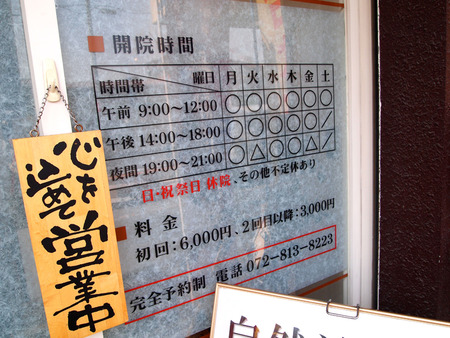 開院時間
時間帯 曜日 月 火 水 木 金 土
午前 9:00～12:00 ○ ○ ○ ○ ○ ○
午後 14:00～18:00 ○ ○ ○ ○ ○ ／
夜間 19:00～21:00 ○ △ ○ ○ △ ／
日・祝祭日 休院、その他不定休あり
料金
初回：6,000円、2回目以降：3,000円
完全予約制 電話 072-813-8223
心を
込めて
営業中